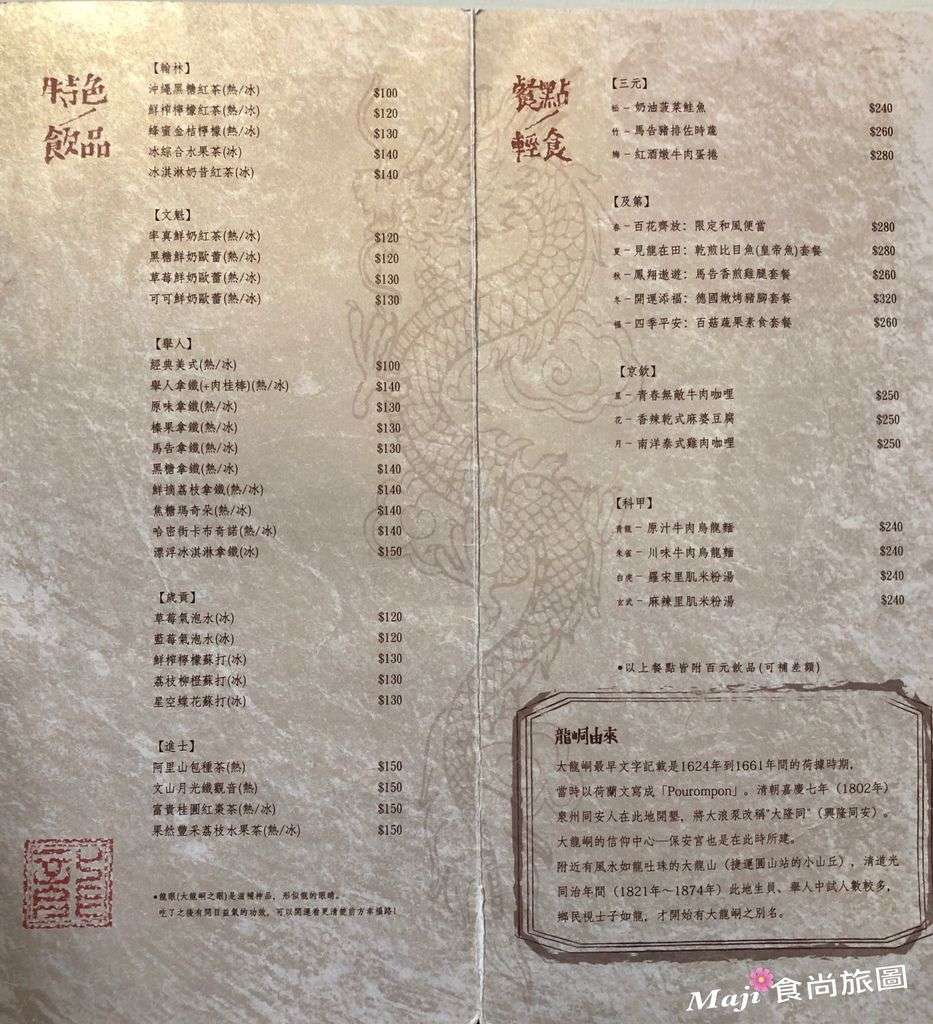 特色
飲品
【翰林】
沖繩黑糖紅茶(熱/冰) $100
鮮榨檸檬紅茶(熱/冰) $120
蜂蜜金桔檸檬(熱/冰) $130
冰綜合水果茶(冰) $140
冰淇淋奶昔紅茶(冰) $140
【文魁】
率真鮮奶紅茶(熱/冰) $120
黑糖鮮奶歐蕾(熱/冰) $120
草莓鮮奶歐蕾(熱/冰) $130
可可鮮奶歐蕾(熱/冰) $130
【舉人】
經典美式(熱/冰) $100
舉人拿鐵(+肉桂棒)(熱/冰) $140
原味拿鐵(熱/冰) $130
榛果拿鐵(熱/冰) $130
馬告拿鐵(熱/冰) $130
黑糖拿鐵(熱/冰) $140
鮮摘荔枝拿鐵(熱/冰) $140
焦糖瑪奇朵(熱/冰) $140
哈密街卡布奇諾(熱/冰) $140
漂浮冰淇淋拿鐵(冰) $150
【歲貢】
草莓氣泡水(冰) $120
藍莓氣泡水(冰) $120
鮮榨檸檬蘇打(冰) $130
荔枝柳橙蘇打(冰) $130
星空蝶花蘇打(冰) $130
【進士】
阿里山包種茶(熱) $150
文山月光鐵觀音(熱) $150
富貴桂圓紅棗茶(熱/冰) $150
果然豐禾荔枝水果茶(熱/冰) $150
•龍眼(大龍峒之眼)是滋補神品，形似龍的眼睛。
吃了之後有開目益氣的功效，可以開運看更清楚前方幸福路！
餐點
輕食
【三元】
松－奶油菠菜鮭魚 $240
竹－馬告豬排佐時蔬 $260
梅－紅酒燉牛肉蛋捲 $280
【及第】
春－百花齊放：限定和風便當 $280
夏－見龍在田：乾煎比目魚(皇帝魚)套餐 $280
秋－鳳翔遨遊：馬告香煎雞腿套餐 $260
冬－開運添福：德國嫩烤豬腳套餐 $320
福－四季平安：百菇蔬果素食套餐 $260
【京欽】
星－青春無敵牛肉咖哩 $250
花－香辣乾式麻婆豆腐 $250
月－南洋泰式雞肉咖哩 $250
【科甲】
青龍－原汁牛肉烏龍麵 $240
朱雀－川味牛肉烏龍麵 $240
白虎－羅宋里肌米粉湯 $240
玄武－麻辣里肌米粉湯 $240
•以上餐點皆附百元飲品(可補差額)
龍峒由來
大龍峒最早文字記載是1624年到1661年間的荷據時期，
當時以荷蘭文寫成「Pourompon」。清朝嘉慶七年（1802年）
泉州同安人在此地開墾，將大浪泵改稱"大隆同"（興隆同安）。
大龍峒的信仰中心—保安宮也是在此時所建。
附近有風水如龍吐珠的大龍山（捷運圓山站的小山丘），清道光
同治年間（1821年～1874年）此地生員、舉人中試人數較多，
鄉民視士子如龍，才開始有大龍峒之別名。
Maji 食尚旅圖